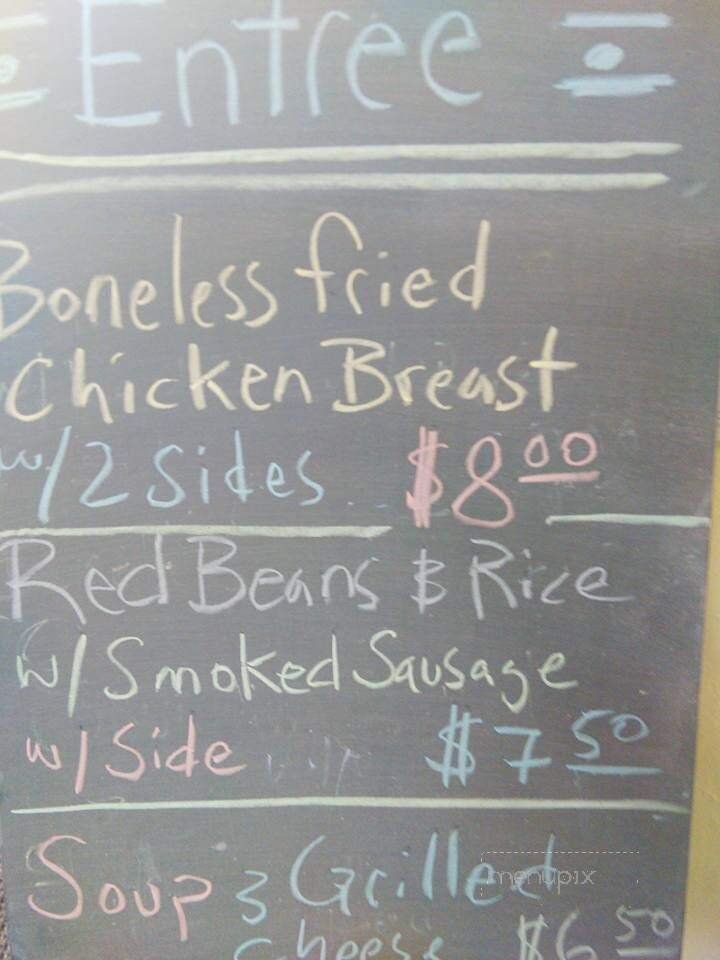 Entree
Boneless fried
Chicken Breast
w/2 Sides $8.00
Red Beans & Rice
w/ Smoked Sausage
w/ Side $7.50
Soup & Grilled
menupix
Cheese $6.50